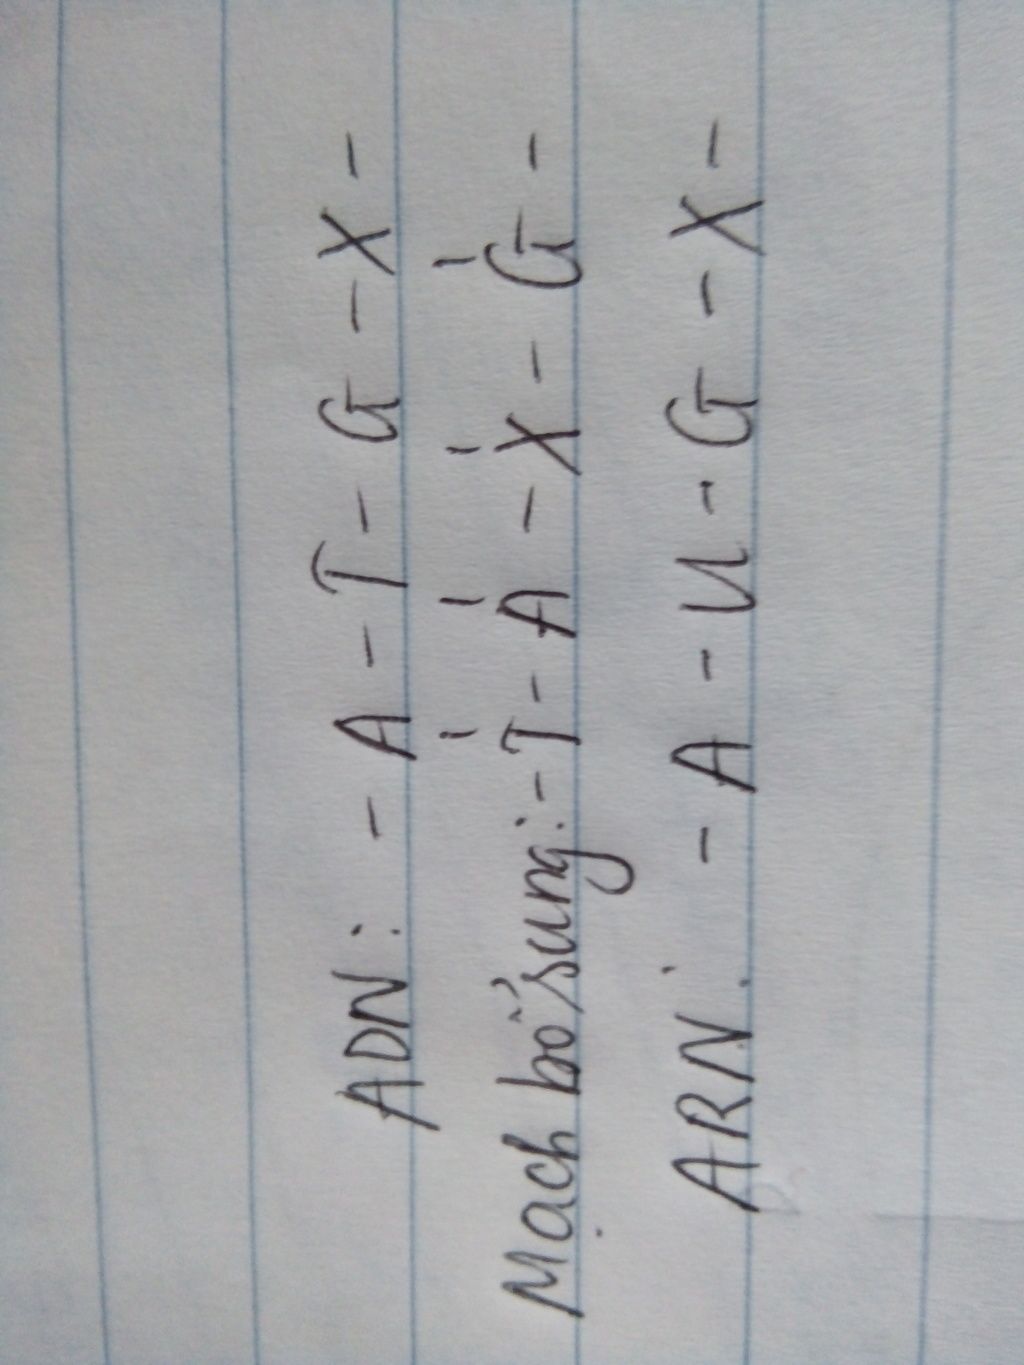 ADN: - A - T - G - X -
Mạch bổ sung: - T - A - X - G -
ARN: - A - U - G - X -